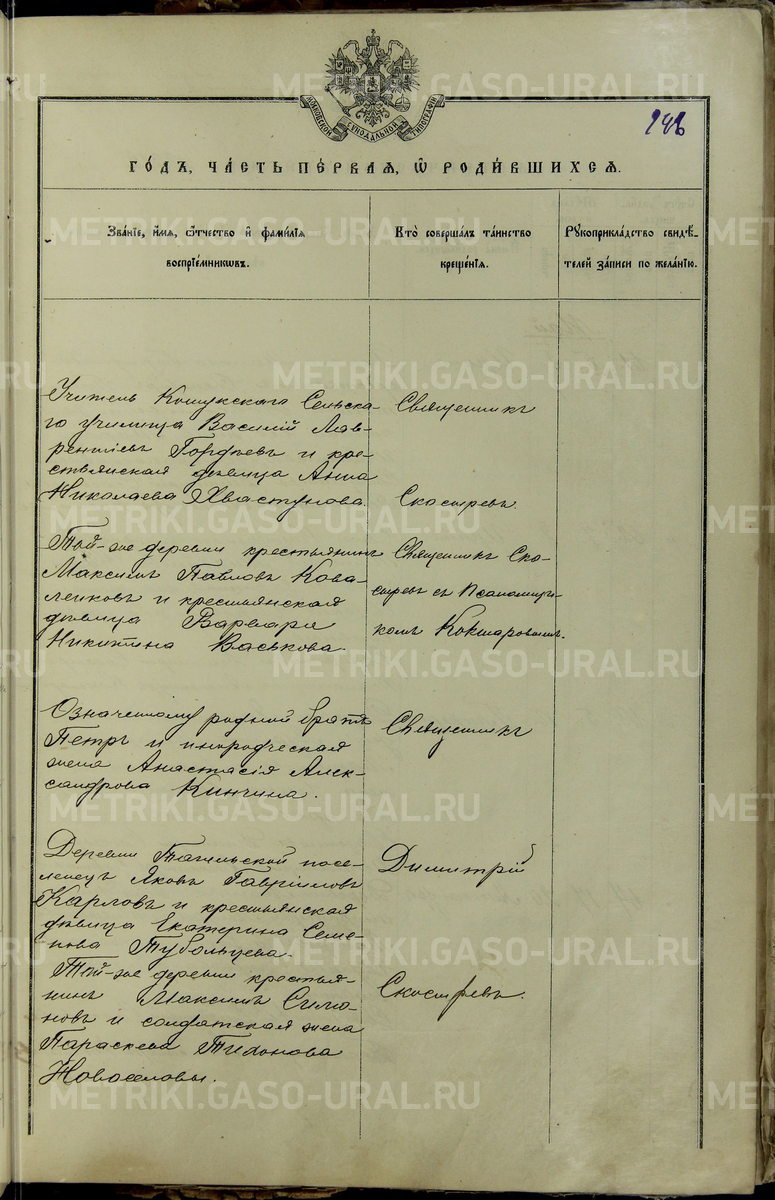 МОСКОВСКОЙ СѴНОДАЛЬНОЙ ТИПОГРАФІИ
146
ГО́ДЪ, ЧА́СТЬ ПЕ́РВАЯ, Ѡ҆ РОДИ́ВШИХСЯ.
Зва́ніе, и҆́мя, ѻ҆́тчество и҆ фами́лія
воспріе́мниковъ.
Кто̀ соверша́лъ та́инство
креще́нія.
Рукоприкла́дство свидѣ́-
телей за́писи по жела́нію.
Учитель Кошукскаго Сельска-
го училища Василій Лав-
рентіевъ Гордѣевъ и кре-
стьянская дѣвица Анна
Николаева Хвастунова.
Священникъ
Скосыревъ.
Той-же деревни крестьянинъ
Максимъ Павловъ Кова-
ленковъ и крестьянская
дѣвица Варвара
Никитина Васькова.
Священникъ Ско-
сыревъ съ Псаломщи-
комъ Кокшаровымъ.
Означенному родной братъ
Петръ и инородческая
жена Анастасія Алек-
сандрова Кинчина.
Священникъ
Деревни Тагильской посе-
ленецъ Яковъ Гавріиловъ
Карловъ и крестьянская
дѣвица Екатерина Семе-
нова Тубольцева.
Димитрій
Той-же деревни крестья-
нинъ Максимъ Симо-
новъ и солдатская жена
Параскева Тихонова
Новоселовы.
Скосыревъ.
METRIKI.GASO-URAL.RU